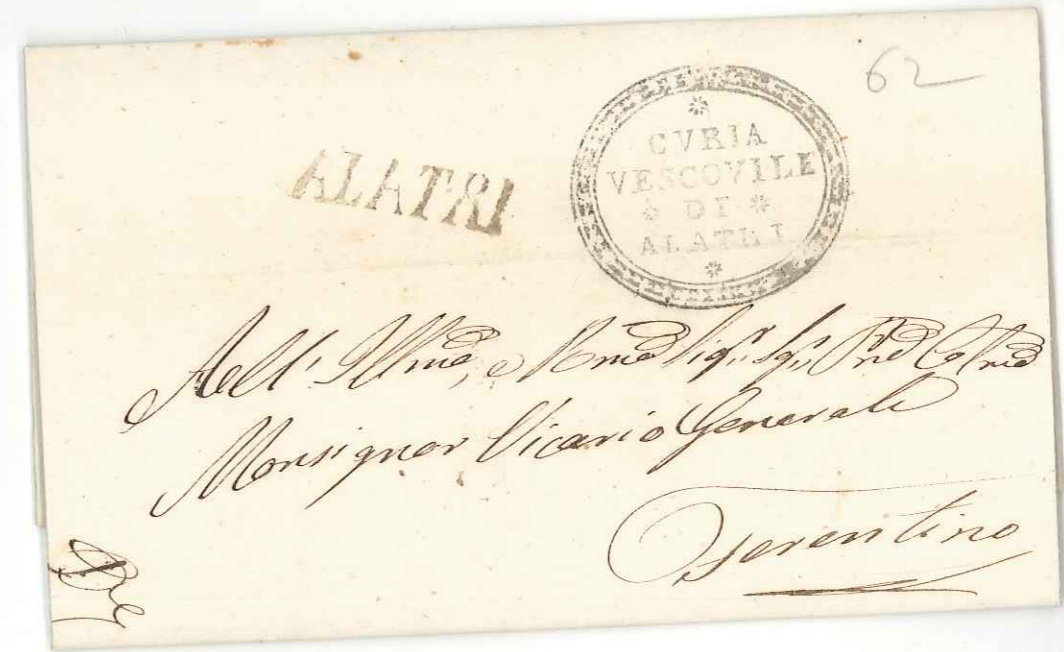 62
ALATRI
CVRIA
VESCOVILE
DI
ALATRI
All' Illmo, e Rmo Sigr. Sgr. Prē Colmo
Monsignor Vicario Generale
Ferentino